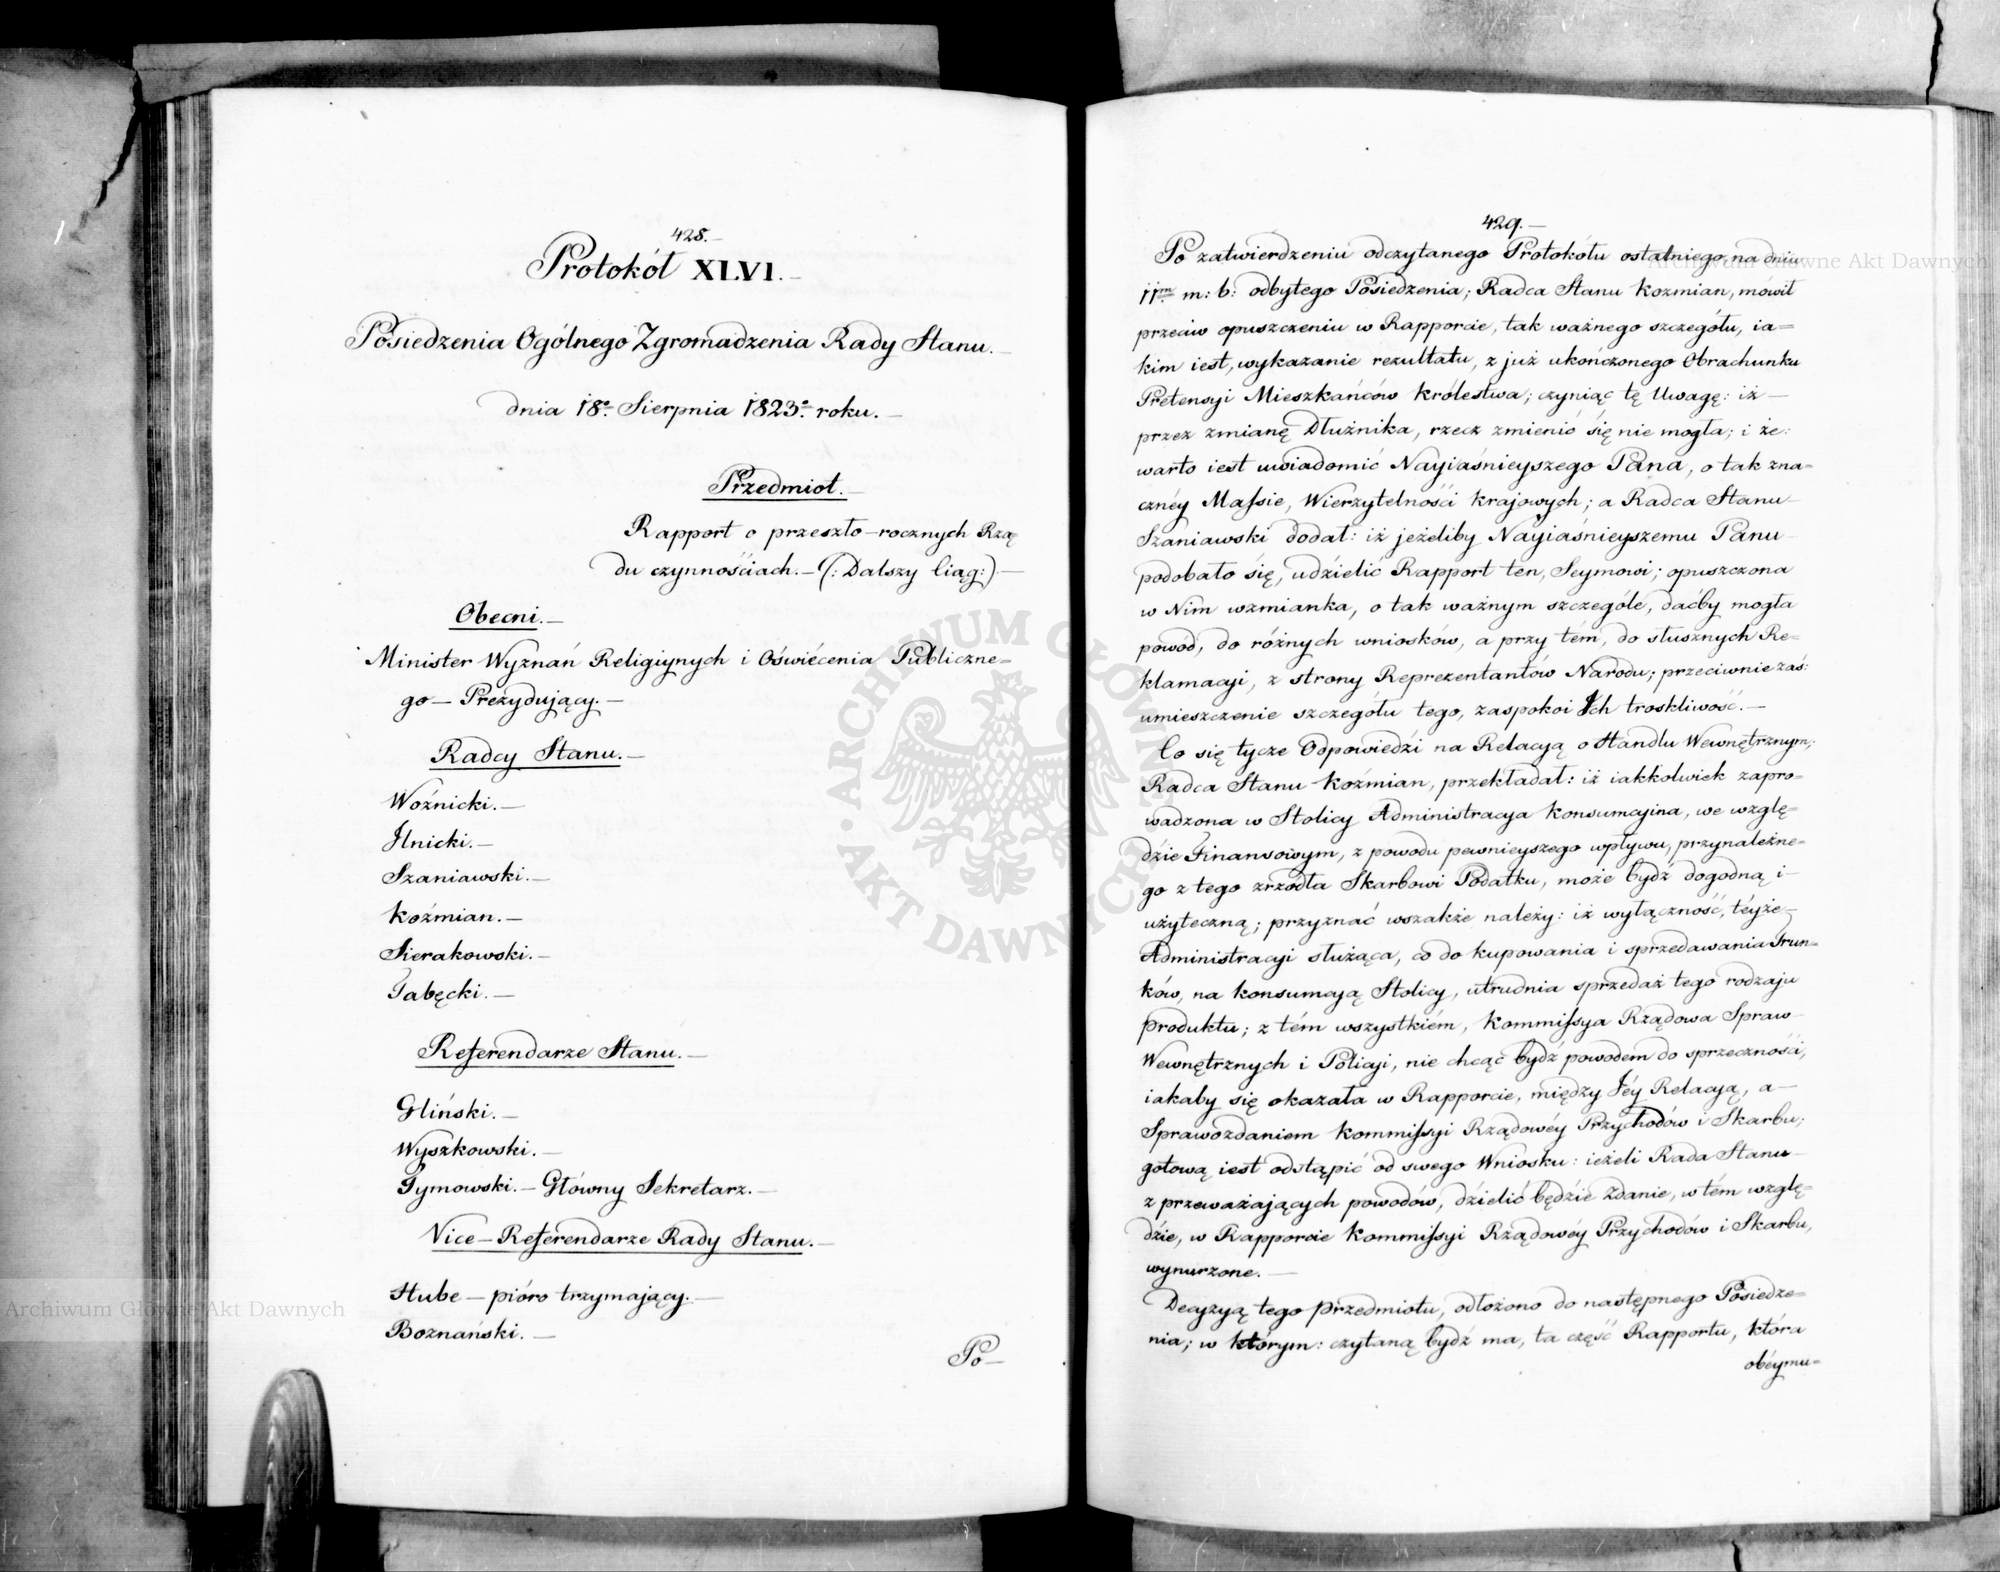 428.—
Protokół XLVI.—
Posiedzenia Ogólnego Zgromadzenia Rady Stanu.—
dnia 18º Sierpnia 1823º roku.—
Przedmiot.—
Rapport o przeszło-rocznych Rzą
du czynnościach.— (: Dalszy Ciąg:)—
Obecni.—
Minister Wyznań Religiynych i Oświécenia Publiczne=
go — Prezydujący.—
Radcy Stanu.—
Woźnicki.—
Ilnicki.—
Szaniawski.—
Koźmian.—
Sierakowski.—
Tabęcki.—
Referendarze Stanu.—
Gliński.—
Wyszkowski.—
Tymowski.— Główny Sekretarz.—
Vice-Referendarze Rady Stanu.—
Hube — pióro trzymający.—
Boznański.—
Po—
429.—
Po zatwierdzeniu odczytanego Protokółu ostatniego, na dniu
11m m: b: odbytego Posiedzenia; Radca Stanu Kozmian, mówił
przeciw opuszczeniu w Rapporcie, tak ważnego szczegółu, ia=
kim iest, wykazanie rezultatu, z już ukończonego Obrachunku
Pretensyi Mieszkańców Królestwa; czyniąc tę Uwagę: iż —
przez zmianę Dłużnika, rzecz zmienić się nie mogła; i że:
warto iest uwiadomić Nayiaśnieyszego Pana, o tak zna=
cznéy Massie, Wierzytelności krajowych; a Radca Stanu
Szaniawski dodał: iż jeżeliby Nayiaśnieyszemu Panu
podobało się, udzielić Rapport ten, Seymowi; opuszczona
w Nim wzmianka, o tak ważnym szczególe, daćby mogła
powód, do różnych wniosków, a przy tem, do słusznych Re=
klamacyi, z strony Reprezentantów Narodu; przeciwnie zaś:
umieszczenie szczegółu tego, zaspokoi Ich troskliwość.—
Co się tycze Odpowiedzi na Relacyą o Handlu Wewnętrznym;
Radca Stanu Koźmian, przekładał: iż iakkolwiek zapro=
wadzona w Stolicy Administracya Konsumcyina, we wzglę=
dzie Finansowym, z powodu pewnieyszego wpływu, przynależne=
go z tego zrzódła Skarbowi Podatku, może bydź dogodną i—
użyteczną; przyznać wszakże należy: iż wyłączność, téyże—
Administracyi służąca, co do kupowania i sprzedawania Trun=
ków, na konsumcyą Stolicy, utrudnia sprzedaż tego rodzaju
produktu; z tém wszystkiém, Kommissya Rządowa Spraw
Wewnętrznych i Policyi, nie chcąc bydź powodem do sprzeczności,
iakaby się okazała w Rapporcie, między Jéy Relacyą, a—
Sprawozdaniem Kommissyi Rządowéy Przychodów i Skarbu;
gotową iest odstąpić od swego Wniosku: ieżeli Rada Stanu
z przeważających powodów, dzielić będzie Zdanie, w tém wzglę=
dzie, w Rapporcie Kommissyi Rządowéy Przychodów i Skarbu,
wynurzone.—
Decyzyą tego przedmiotu, odłożono do następnego Posiedze=
nia; w którym: czytaną bydź ma, ta część Rapportu, która
obéymu=
ARCHIWUM GŁÓWNE AKT DAWNYCH
Archiwum Główne Akt Dawnych
Archiwum Główne Akt Dawnych